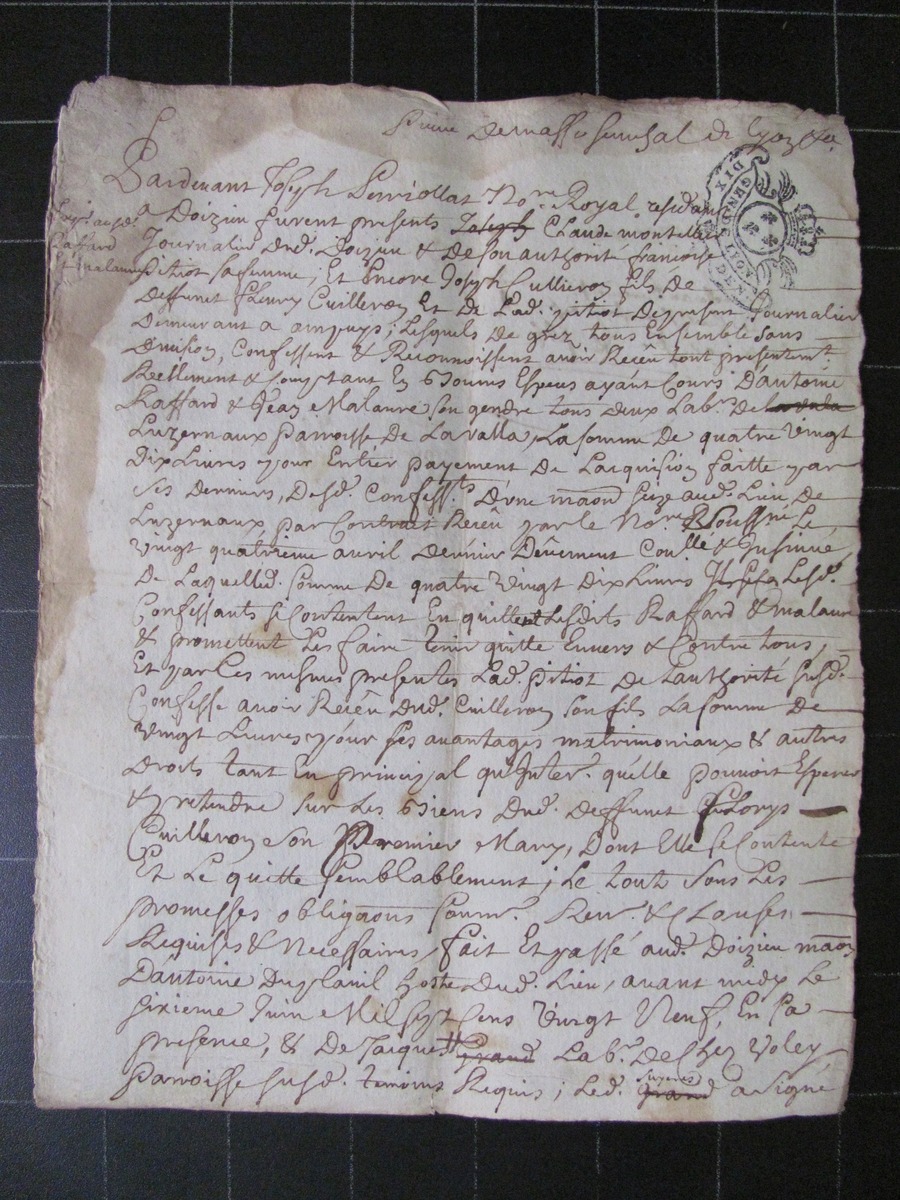 Pierre Demasso senechal de Lyon &a.
Pardevant Joseph Perriollat No.re Royal residant
a Doizieu furent presents Joseph Claude montellier
Journalier dud. Doizieu & de son authorité francoise
pitiot sa femme ; Et Encore Joseph Cuilleron fils de
deffunct fleury Cuilleron Et de Lad. pitiot Depresent Journalier
Demeurant a ampuys ; Lesquels de grez tous Ensemble sans
division, Confessent & Reconnoissent avoir Receu tout presentem.t
Reellement & Comptant En bonnes Especes ayant Cours D'antoine
Raffard & Jean Malaure son gendre tous deux Lab.rs de
Luzernaux parroisse de Lavalla, La somme de quatre vingt
Dix Livres pour Entier payement de Lacquision faitte par
ses derniers, desd. Confess.ts D'une maon size aud. Lieu de
Luzernaux par Contract Receu par le No.re Le
vingt quatrieme avril dernier Deuement Coullé & Insinué
De Laquelled. somme de quatre vingt dix Livres Lesd.
Confessants se Contentent En quittent Lesdits Raffard & malaure
& promettent Les faire tenir quitte Envers & Contre tous,
Et par les mesmes presentes Lad. pitiot de Lauthorité susd.
Confesse avoir Receu dud. Cuilleron son fils La somme de
vingt Livres pour ses avantages matrimoniaux & autres
droits tant En principal qu'Inter. qu'elle pouvoit Esperer
& pretendre sur Les biens dud. deffunct florys
Cuilleron son Premier Mary, Dont Elle se Contente
Et Le quitte semblablement ; Le tout sous Les
promesses obligaons soum. Ren. & Clauses
Requises & Necessaires, fait Et passé aud. Doizieu maon
D'antoine Duplanil hoste dud. Lieu, avant midy Le
sixieme Juin Mil sept Cens vingt Neuf, En la
presence, & De Jacque grand Lab.r De Chez Voley
Parroisse susd. temoins Requis ; Led. grand a signé
Raffard
Et malaure
DIX
GEN
DE LYON